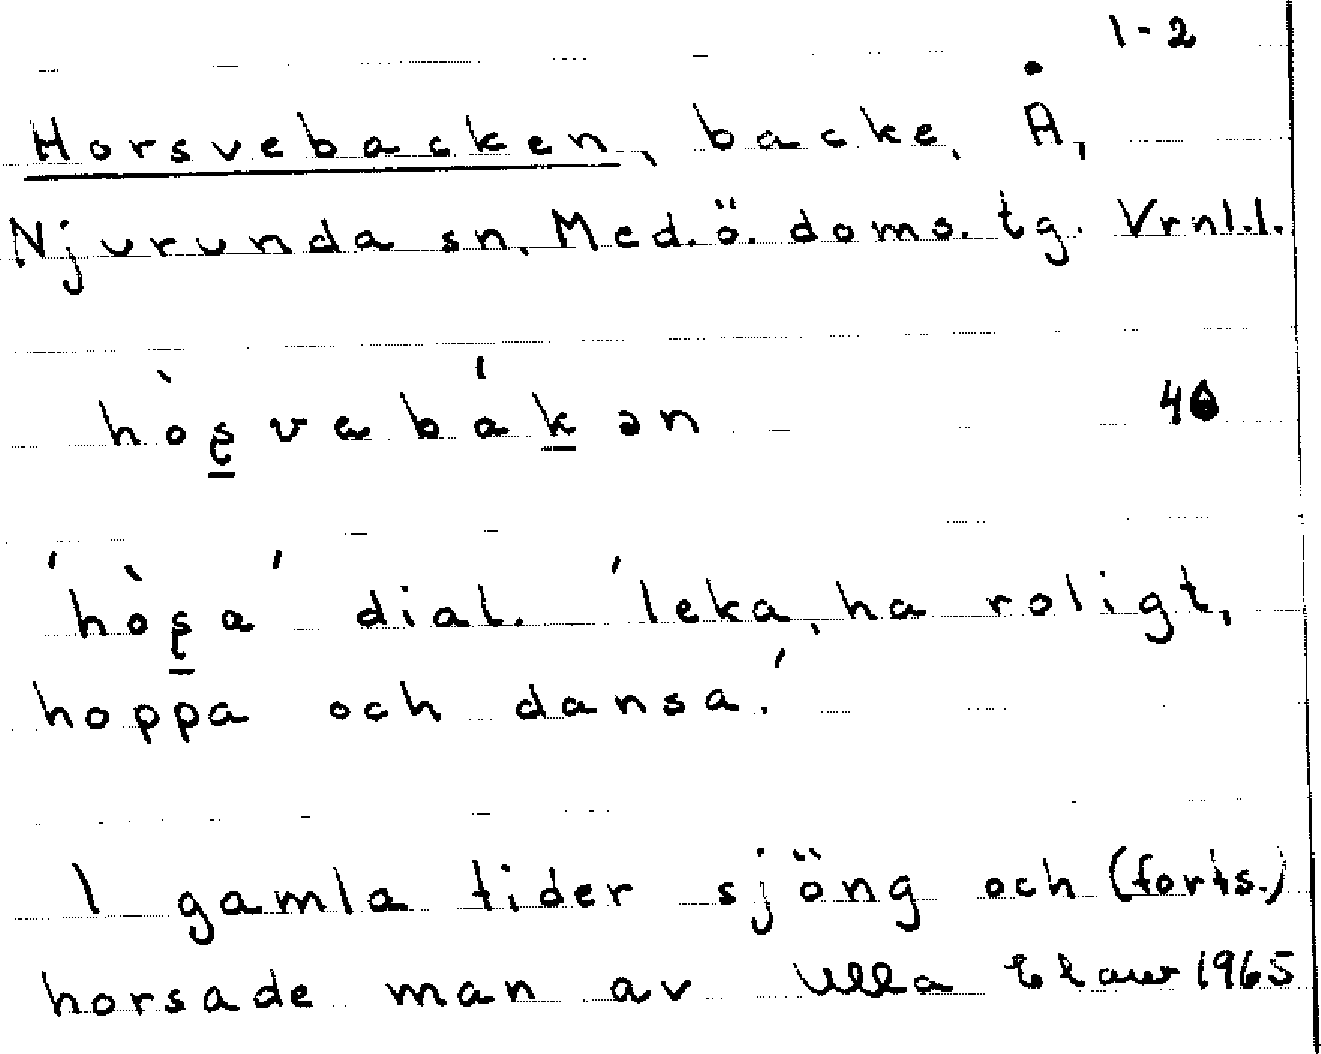 1-2
Horsvebacken, backe, Å,
Njurunda sn, Med. ö. doms. tg. Vrnl.l.
hòʂvabákən 40
'hòʂa' dial. 'leka, ha roligt,
hoppa och dansa.'
I gamla tider sjöng och (forts.)
horsade man av Ulla 1965